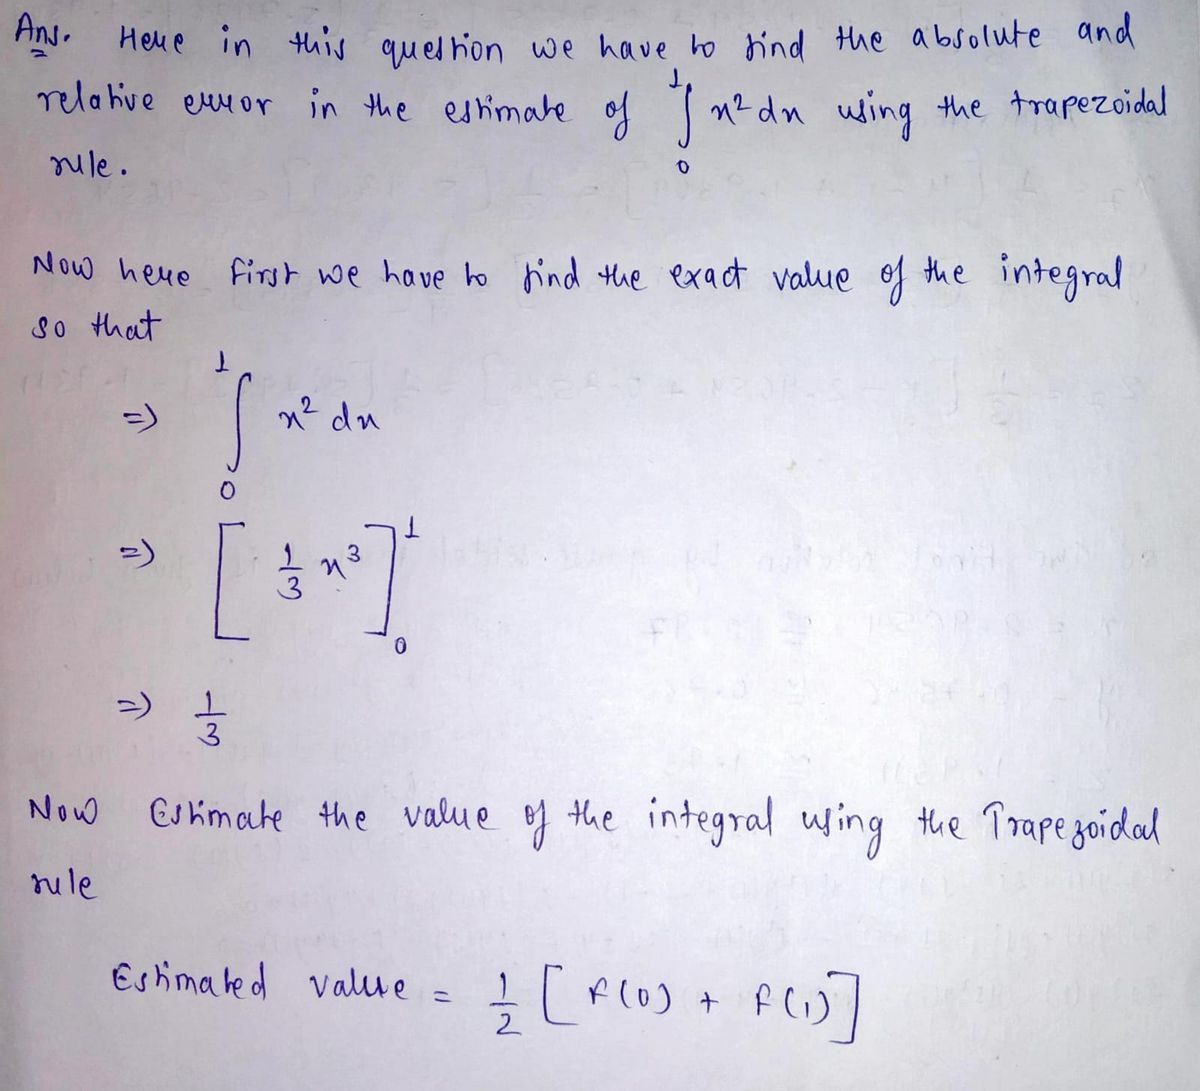 Ans. Here in this question we have to find the absolute and
relative error in the estimate of ∫₀¹ x² dx using the trapezoidal
rule.
Now here first we have to find the exact value of the integral
so that
=> ∫₀¹ x² dx
=> [ 1/3 x³ ]₀¹
=> 1/3
Now Estimate the value of the integral using the Trapezoidal
rule
Estimated value = 1/2 [ f(0) + f(1) ]